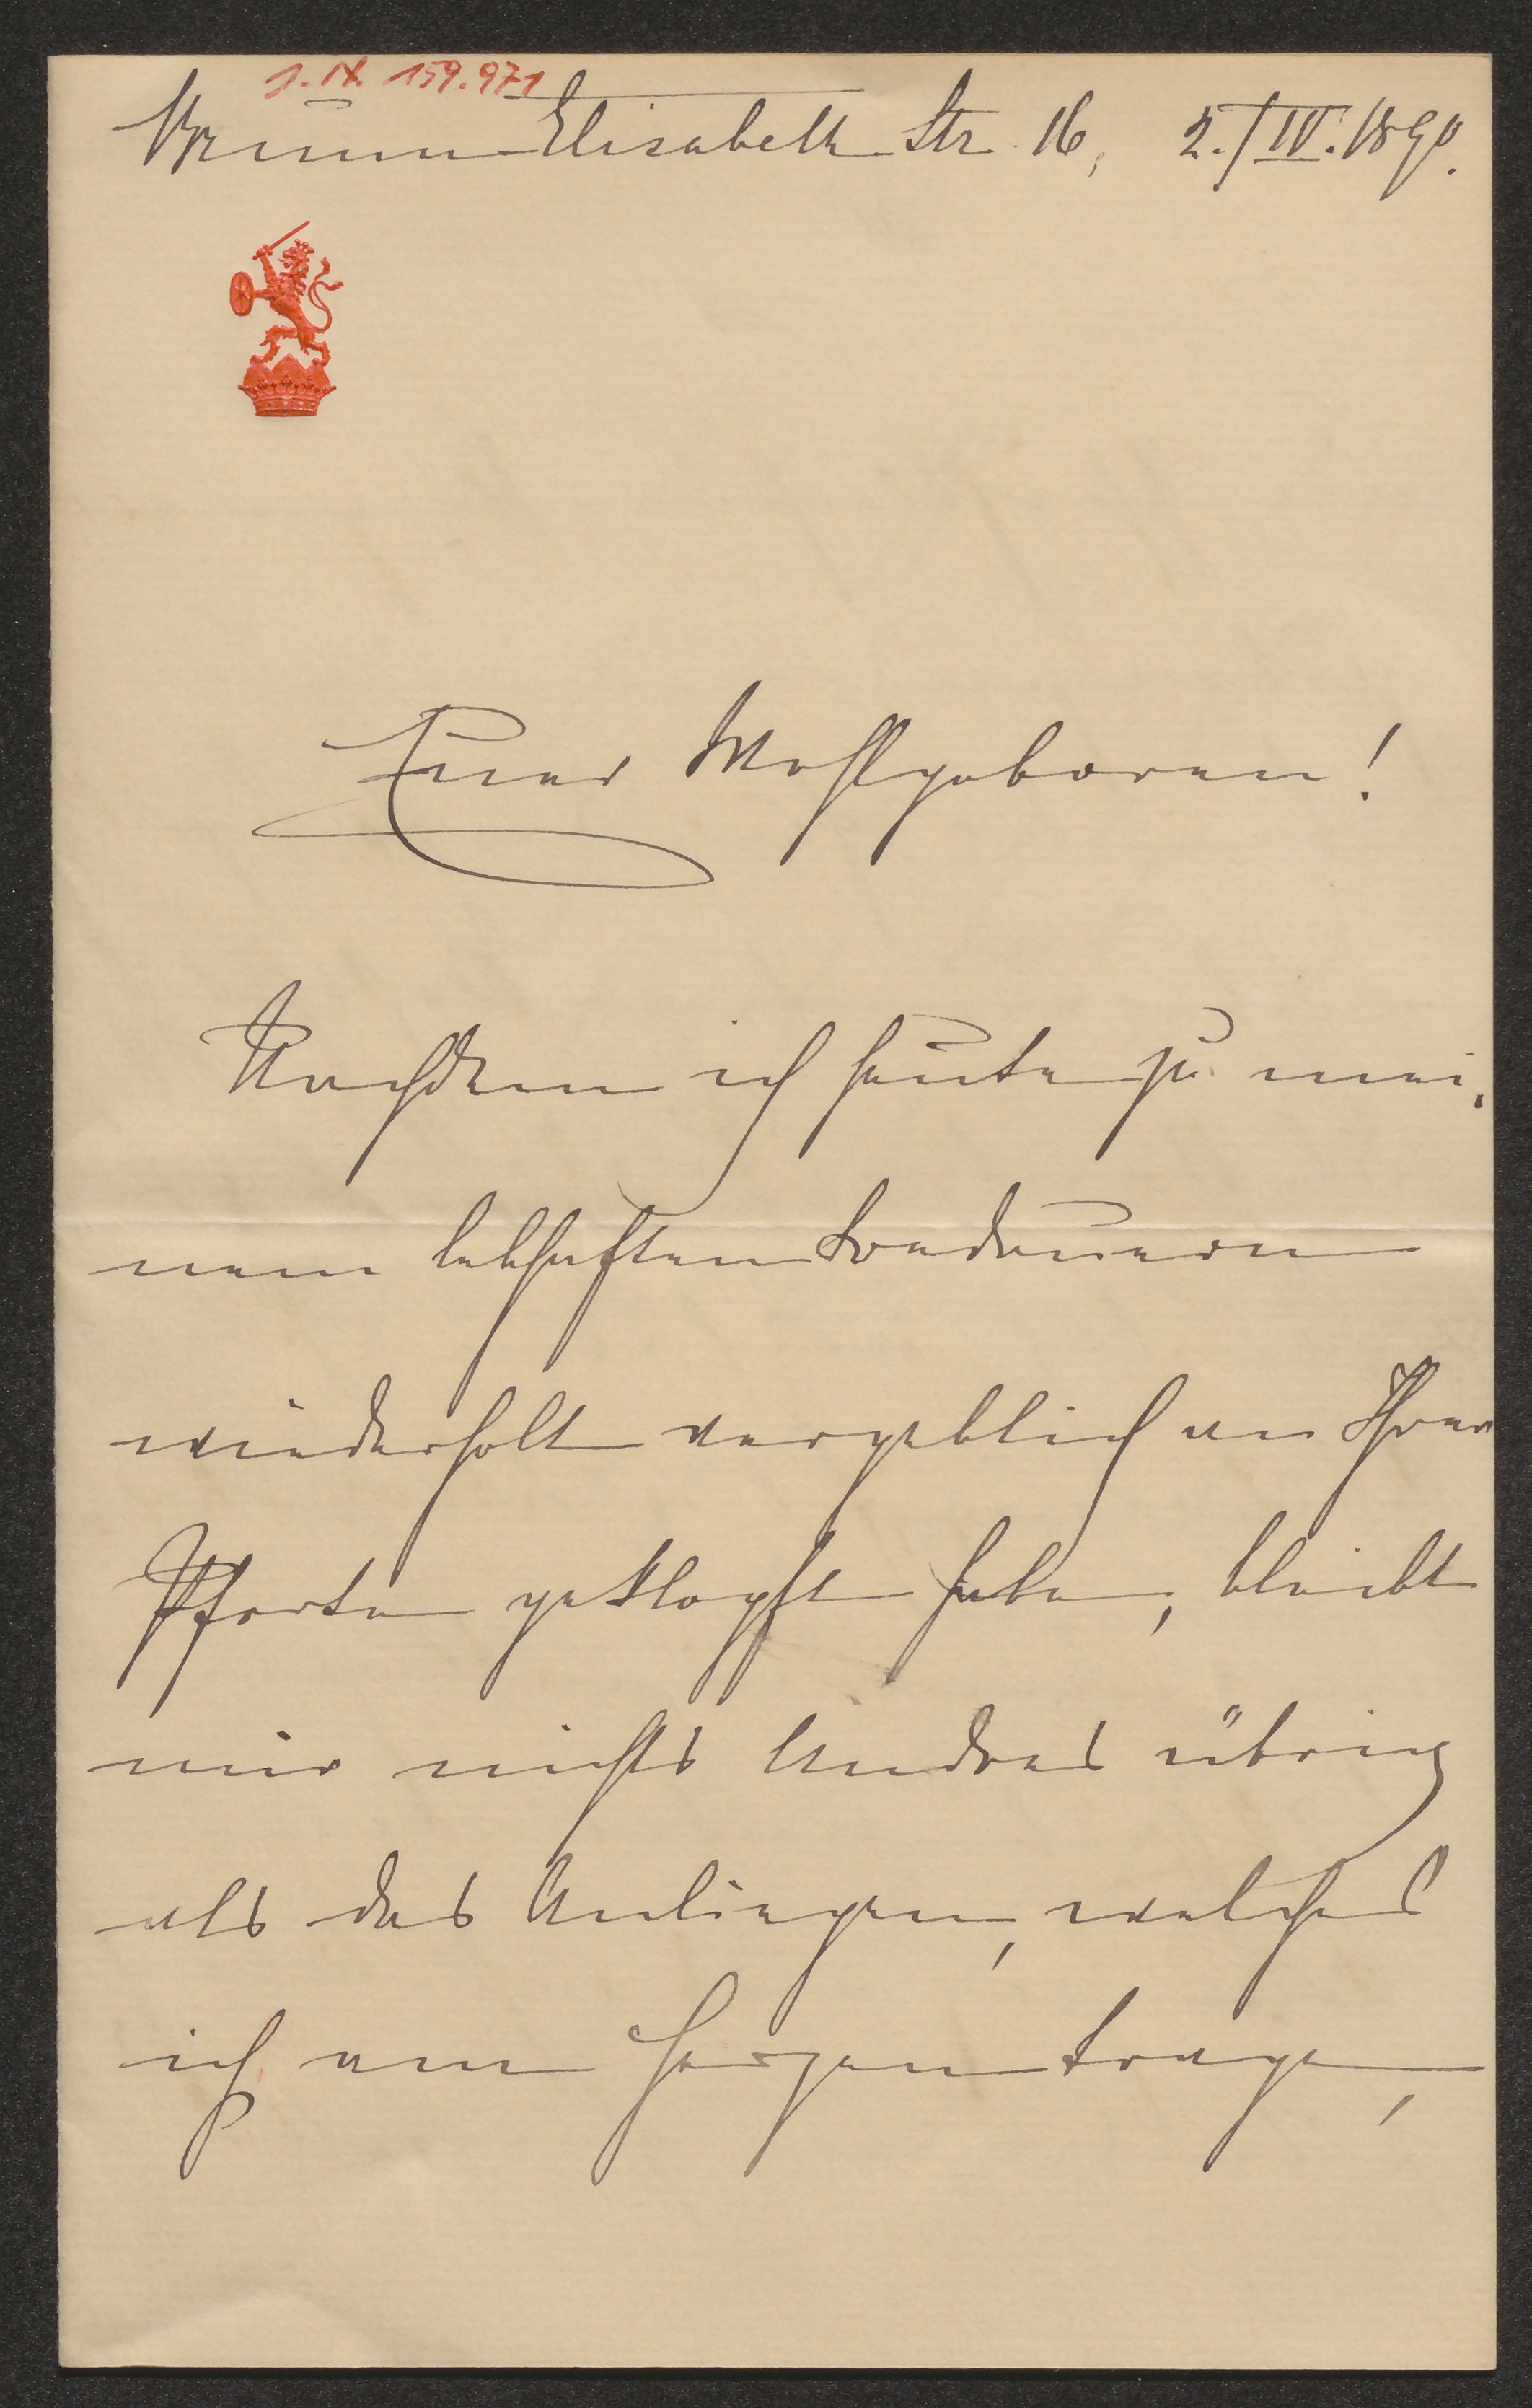 J. N. 159.971
Brünn Elisabeth Str. 16, 2./IV. 1890.
Euer Wohlgeboren!
Nachdem ich heute zu mei-
nem lebhaften Bedauern
wiederholt vergeblich an Ihrer
Pforte geklopft habe, bleibt
mir nichts Andres übrig
als das Anliegen, welches
ich am Herzen trage,